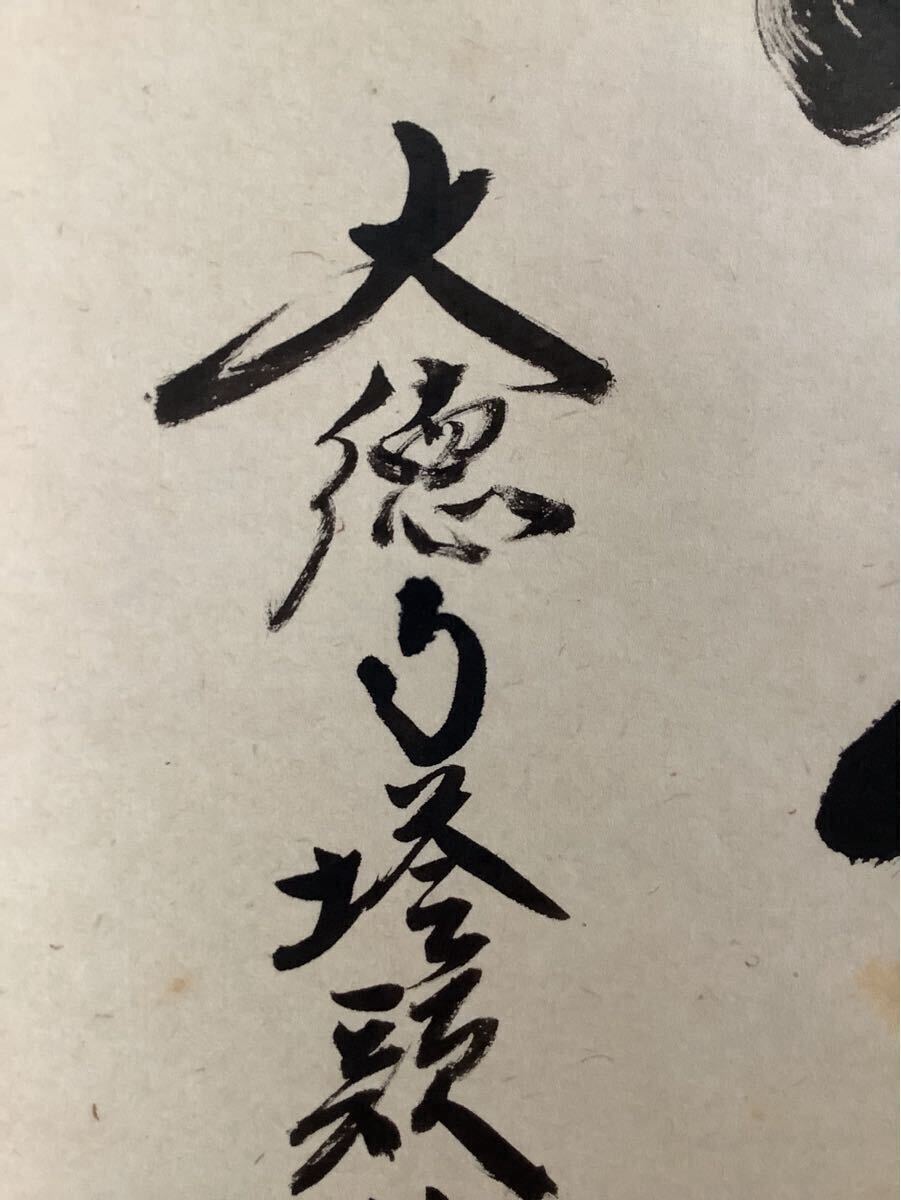 大徳寺塔頭